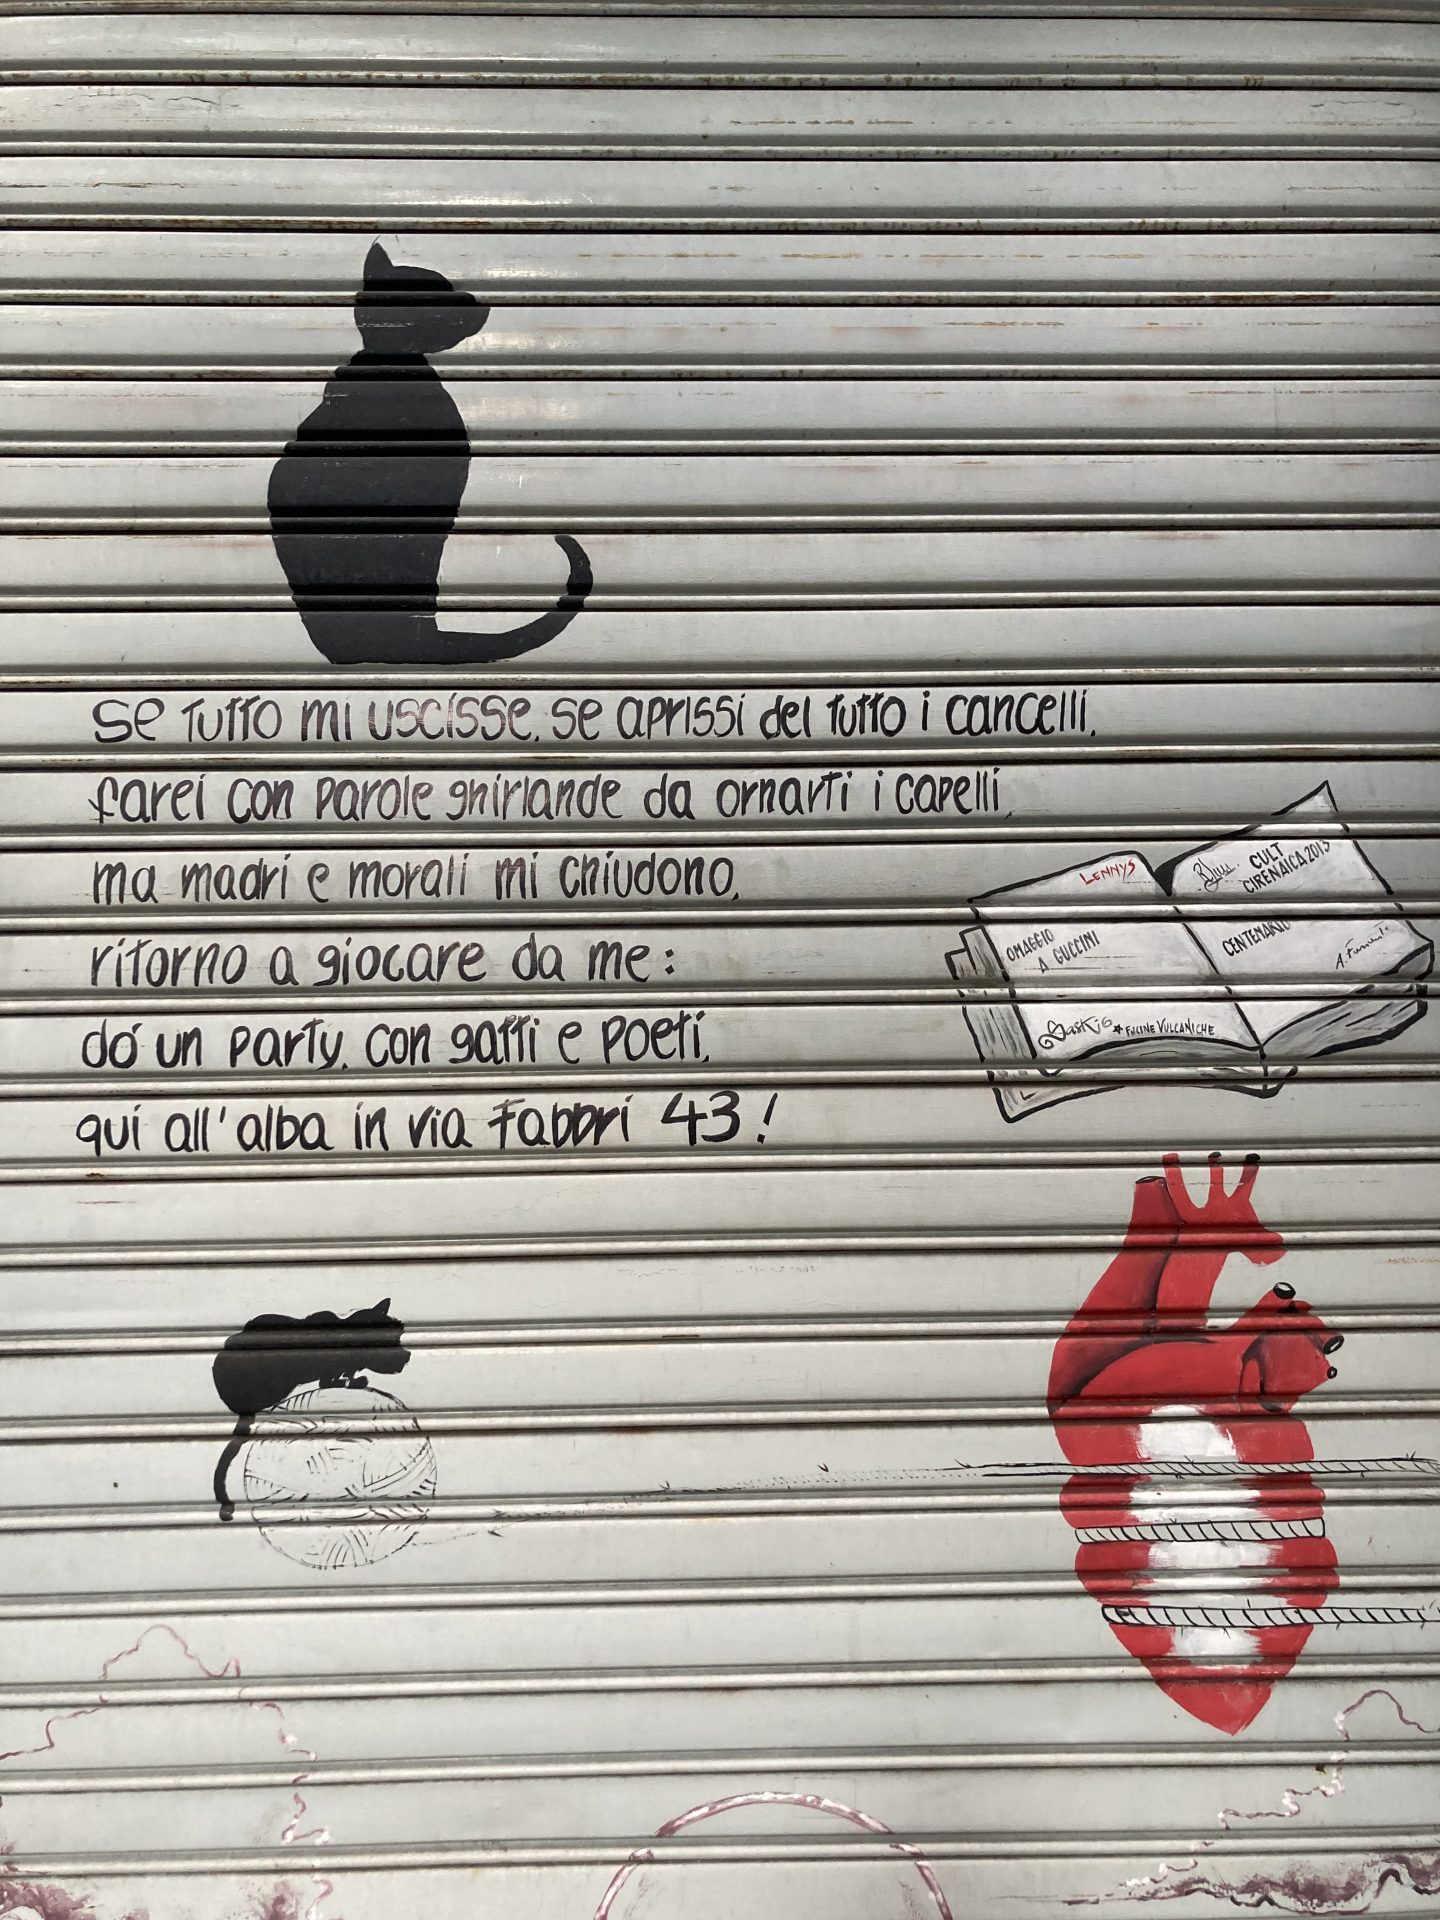 se tutto mi uscisse, se aprissi del tutto i cancelli,
farei con parole ghirlande da ornarti i capelli,
ma madri e morali mi chiudono,
ritorno a giocare da me:
dó un party, con gatti e poeti,
qui all'alba in via Fabbri 43!
LENNYS
OMAGGIO
A GUCCINI
FUCINE VULCANICHE
CULT
CIRENAICA 2015
CENTENARIO